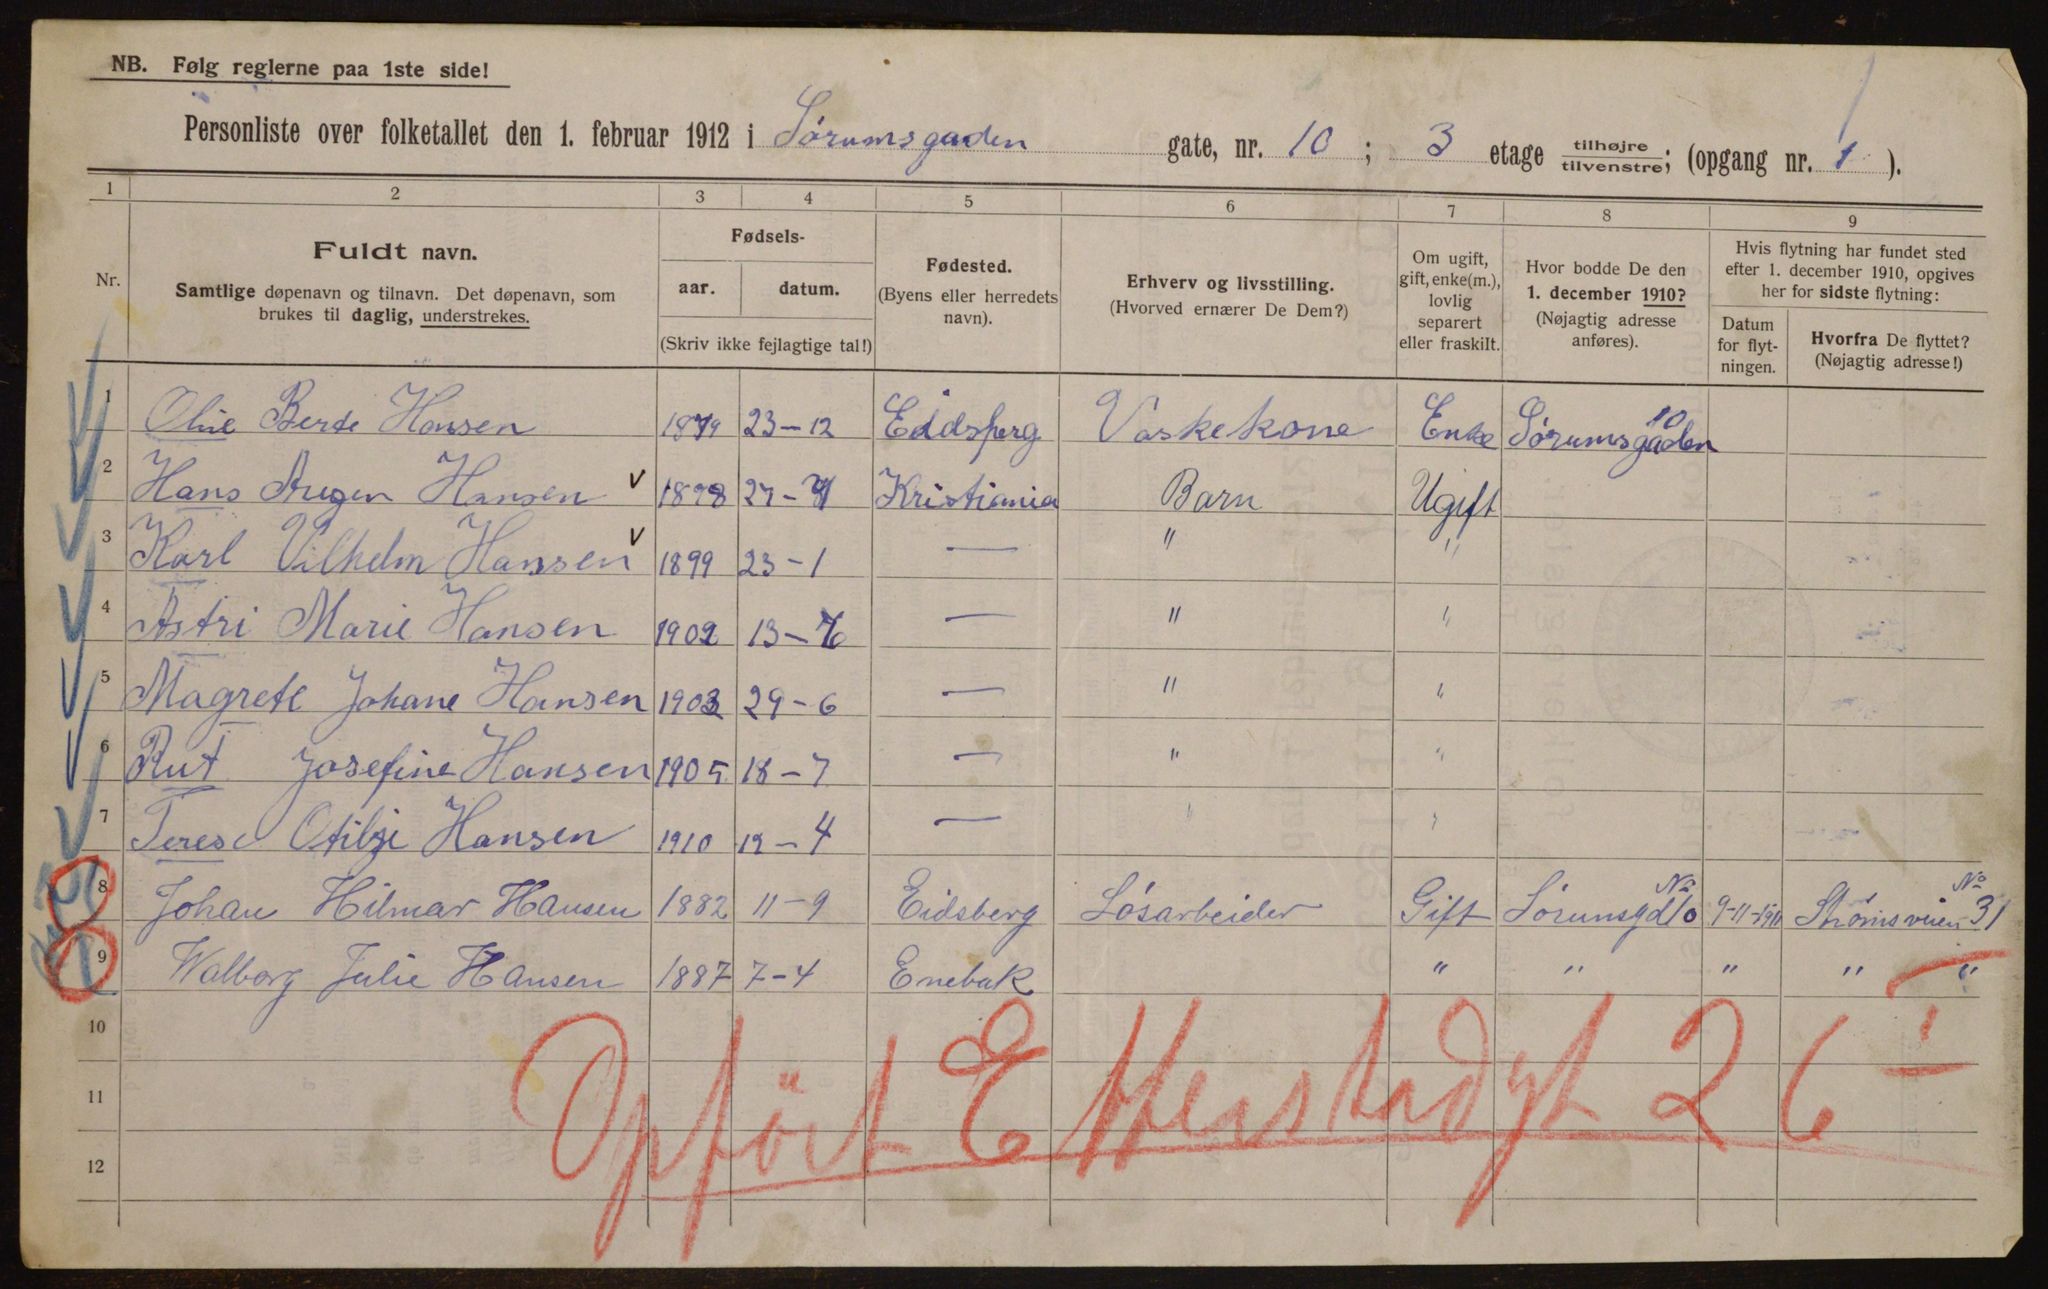 NB. Følg reglerne paa 1ste side!
Personliste over folketallet den 1. februar 1912 i Sórumsgaden gate, nr. 10; 3 etage tilhøjre/tilvenstre; (opgang nr. 1).
1 2 3 4 5 6 7 8 9
Nr.
Fuldt navn.
Samtlige døpenavn og tilnavn. Det døpenavn, som
brukes til daglig, understrekes.
Fødsels-
aar. datum.
(Skriv ikke fejlagtige tal!)
Fødested.
(Byens eller herredets
navn).
Erhverv og livsstilling.
(Hvorved ernærer De Dem?)
Om ugift,
gift, enke(m.),
lovlig
separert
eller fraskilt.
Hvor bodde De den
1. december 1910?
(Nøjagtig adresse
anføres).
Hvis flytning har fundet sted
efter 1. december 1910, opgives
her for sidste flytning:
Datum
for flyt-
ningen.
Hvorfra De flyttet?
(Nøjagtig adresse!)
1 Oline Berte Hansen 1879 23-12 Eidsperg Vaskekone Enke Sórumsgaden 10
2 Hans Hansen 1898 27- Kristiania Barn Ugift
3 Karl Vilhelm Hansen 1899 23-1 — " "
4 Astri Marie Hansen 1902 13- — " "
5 Magrete Johane Hansen 1903 29-6 — " "
6 Rut Josefine Hansen 1905 18-7 — " "
7 Terese Otilje Hansen 1910 12-4 — " "
8 Johan Hilmar Hansen 1882 11-9 Eidsberg Lósarbeider Gift Sórumsgd No 10 9-11-1911 Strómsveien No 31
9 Walborg Julie Hansen 1887 7-4 Enebak " " " " "
10
11
12
Opfört Etterstadgt 26 I